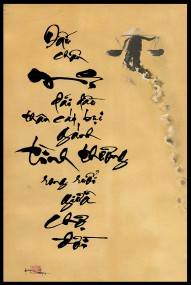 Dấu
chân
dãi dầu
thân cát bụi
gánh
tình thương
rong ruổi
giữa
chợ
đời